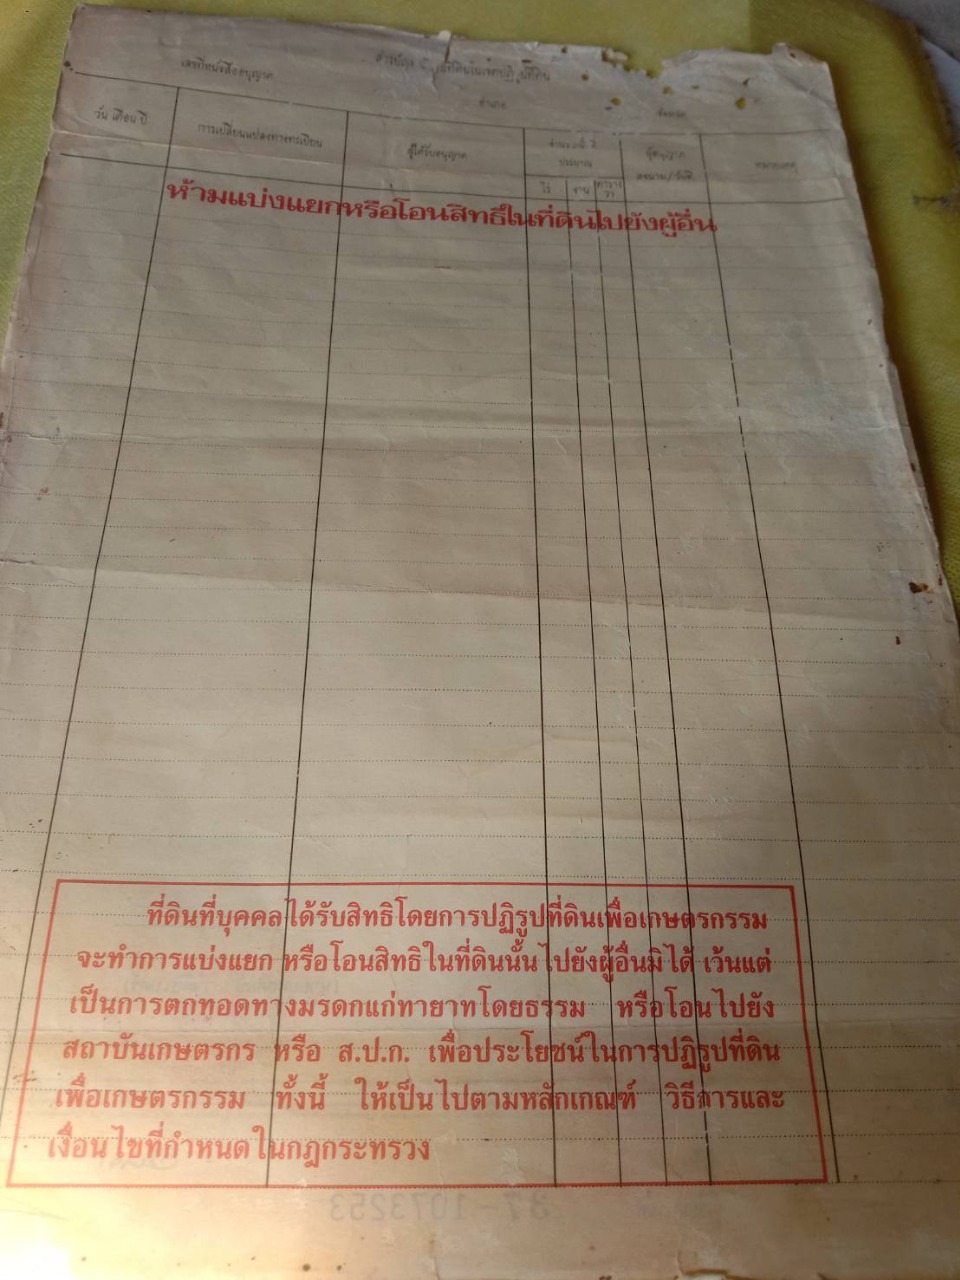 เลขที่หนังสืออนุญาต
สารบัญ ที่ดินในเขตปฏิรูปที่ดิน
อำเภอ
จังหวัด
วัน เดือน ปี
การเปลี่ยนแปลงทางทะเบียน
ผู้ได้รับอนุญาต
ประมาณ
ไร่
งาน
ตาราง
วา
ผู้อนุญาต
ลงนาม/วันที่
หมายเหตุ
ห้ามแบ่งแยกหรือโอนสิทธิในที่ดินไปยังผู้อื่น
ที่ดินที่บุคคลได้รับสิทธิโดยการปฏิรูปที่ดินเพื่อเกษตรกรรม
จะทำการแบ่งแยก หรือโอนสิทธิในที่ดินนั้นไปยังผู้อื่นมิได้ เว้นแต่
เป็นการตกทอดทางมรดกแก่ทายาทโดยธรรม หรือโอนไปยัง
สถาบันเกษตรกร หรือ ส.ป.ก. เพื่อประโยชน์ในการปฏิรูปที่ดิน
เพื่อเกษตรกรรม ทั้งนี้ ให้เป็นไปตามหลักเกณฑ์ วิธีการและ
เงื่อนไขที่กำหนดในกฎกระทรวง
37-1073253